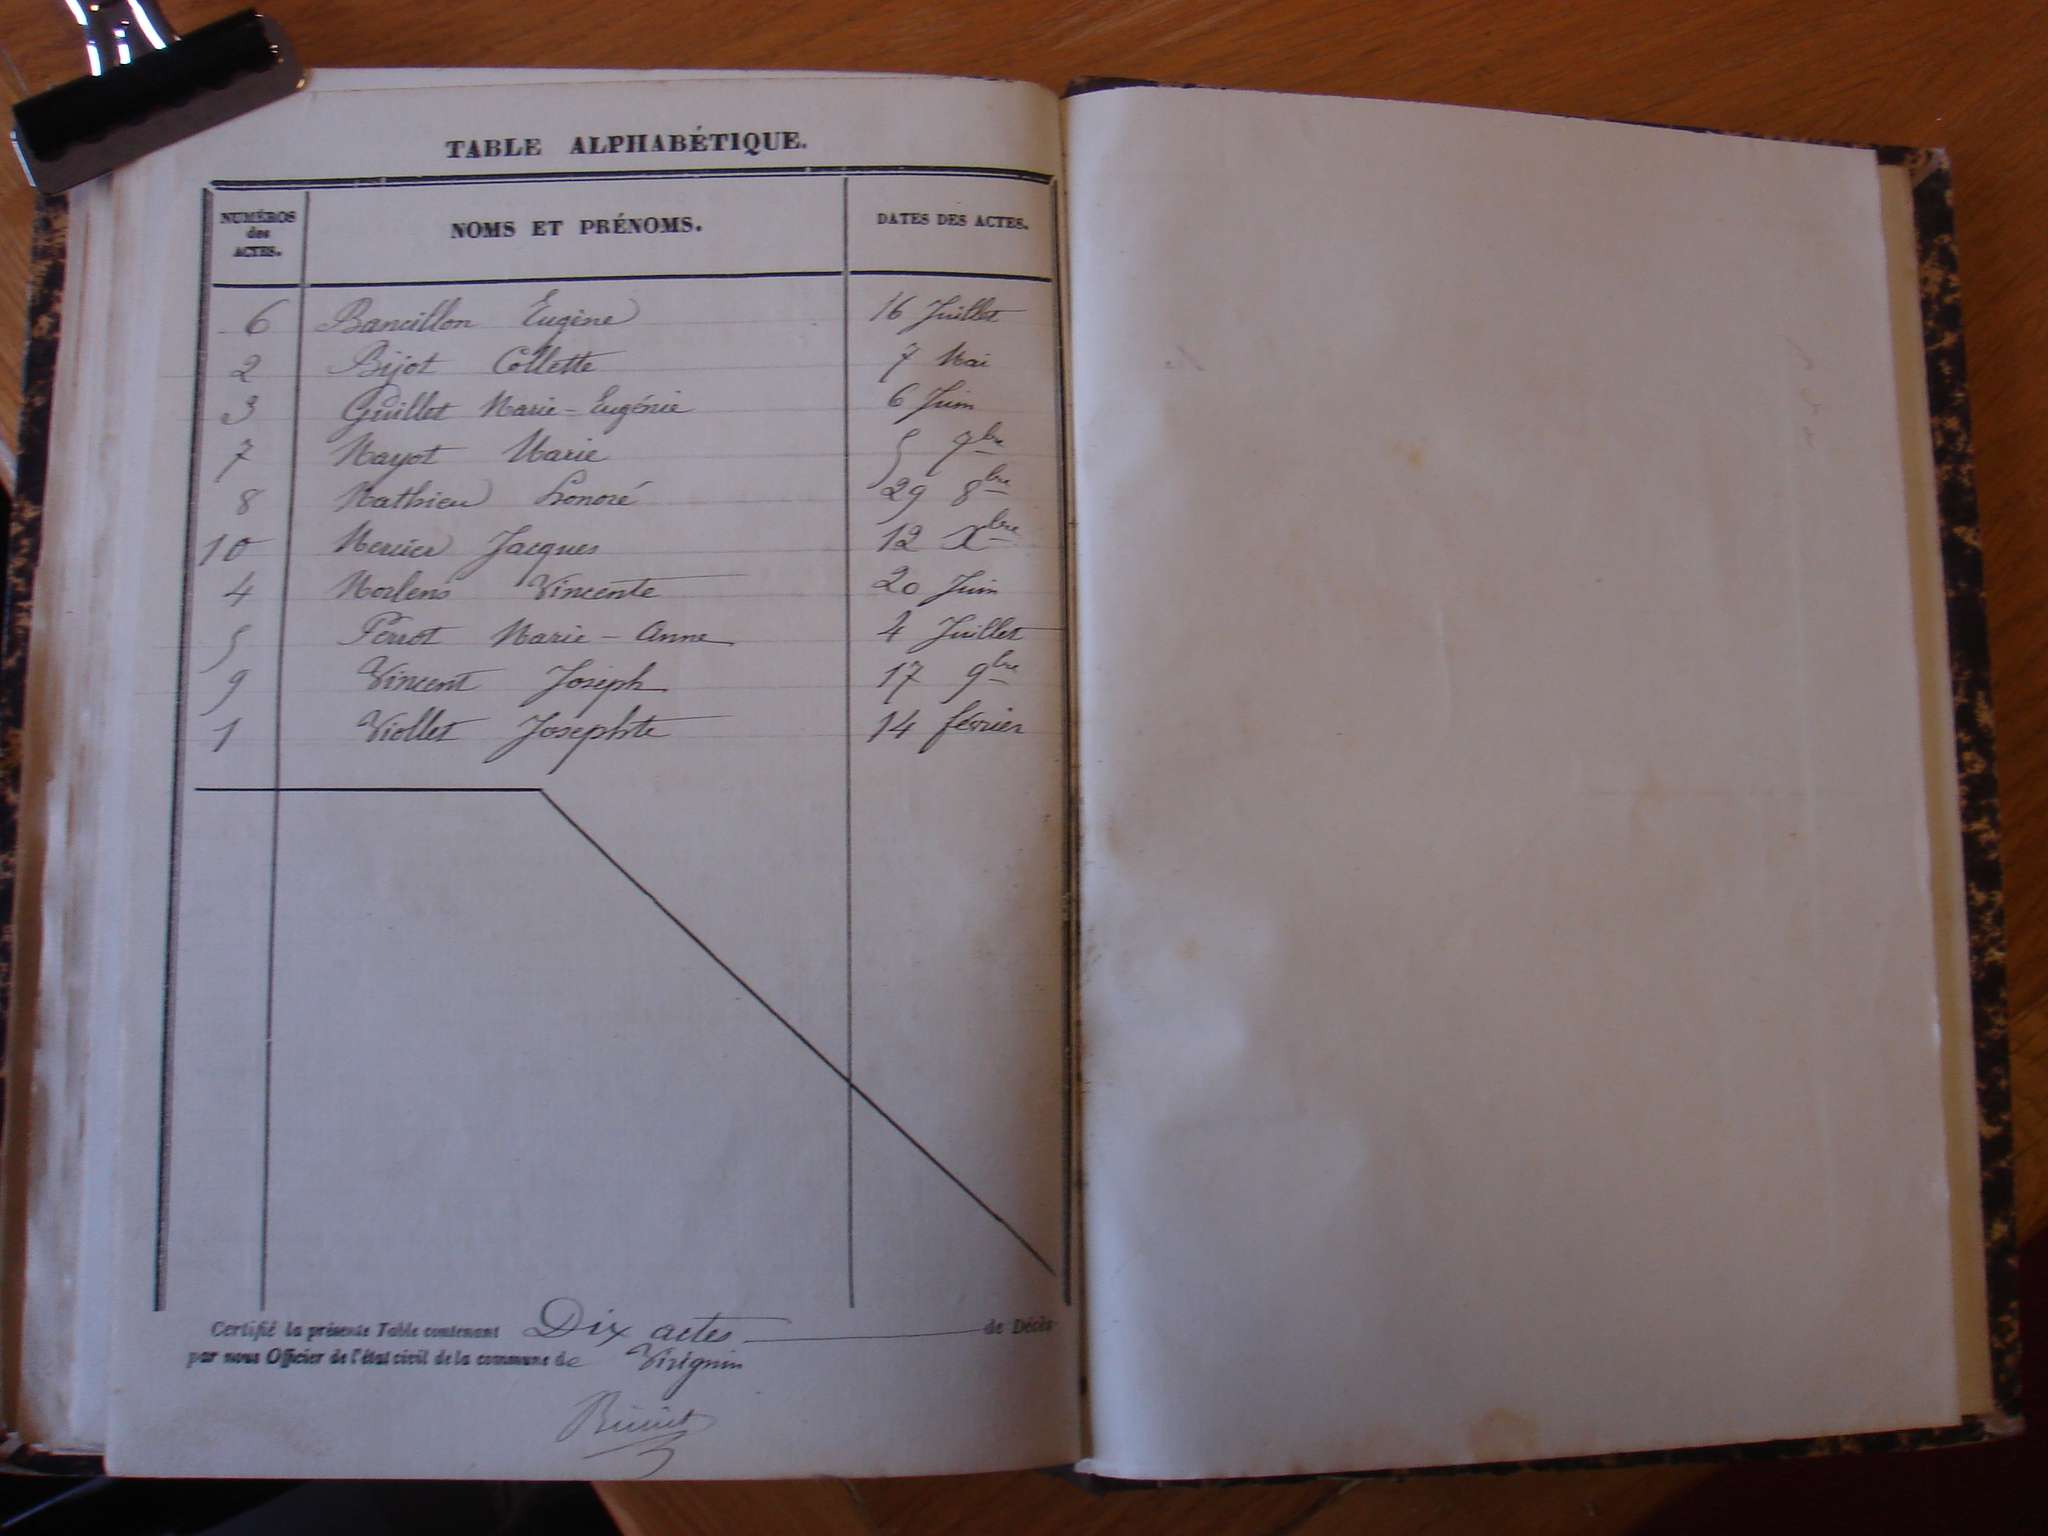 TABLE ALPHABÉTIQUE.
NUMÉROS des ACTES. NOMS ET PRÉNOMS. DATES DES ACTES.
6 Bancillon Eugène 16 Juillet
2 Bijot Collette 7 Mai
3 Guillet Marie-Eugénie 6 Juin
7 Mayot Marie 5 7bre
8 Mathieu honoré 29 8bre
10 Mercier Jacques 12 Xbre
4 Morlens Vincente 20 Juin
5 Perrot Marie-Anne 4 Juillet
9 Vincent Joseph 17 9bre
1 Viollet Josephte 14 février
Certifié la présente Table contenant Dix actes de Décès
par nous Officier de l'état civil de la commune de Virignin